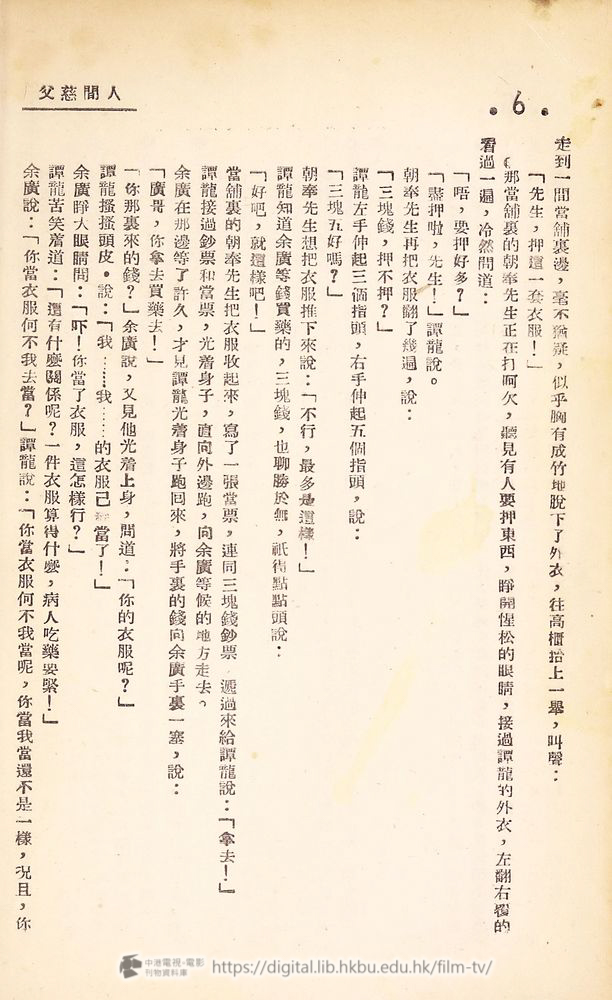 人間慈父
.6.
走到一間當舖裏邊，毫不猶疑，似乎胸有成竹地脫下了外衣，往高櫃抬上一舉，叫聲：
「先生，押這一套衣服！」
那當舖裏的朝奉先生正在打呵欠，聽見有人要押東西，睜開惺松的眼睛，接過譚龍的外衣，左翻右翻的
看過一遍，冷然問道：
「唔，要押好多？」
「盡押啦，先生！」譚龍說。
朝奉先生再把衣服翻了幾遍，說：
「三塊錢，押不押？」
譚龍左手伸起三個指頭，右手伸起五個指頭，說：
「三塊五好嗎？」
朝奉先生想把衣服推下來說：「不行，最多是這樣！」
譚龍知道余廣等錢買藥的，三塊錢，也聊勝於無，祇得點點頭說：
「好吧，就這樣吧！」
當舖裏的朝奉先生把衣服收起來，寫了一張當票，連同三塊錢鈔票遞過來給譚龍說：「拿去！」
譚龍接過鈔票和當票，光着身子，直向外邊跑，向余廣等候的地方走去。
余廣在那邊等了許久，才見譚龍光着身子跑回來，將手裏的錢向余廣手裏一塞，說：
「廣哥，你拿去買藥去！」
「你那裏來的錢？」余廣說，又見他光着上身，問道：「你的衣服呢？」
譚龍搔搔頭皮。說：「我……我……的衣服已經當了！」
余廣睜大眼睛問：「吓！你當了衣服，這怎樣行？」
譚龍苦笑着道：「還有什麼關係呢？一件衣服算得什麼，病人吃藥要緊！」
余廣說：「你當衣服何不我去當？」譚龍說：「你當衣服何不我當呢，你當我當還不是一樣，況且，你
中港電視·電影
刊物資料庫
https://digital.lib.hkbu.edu.hk/film-tv/